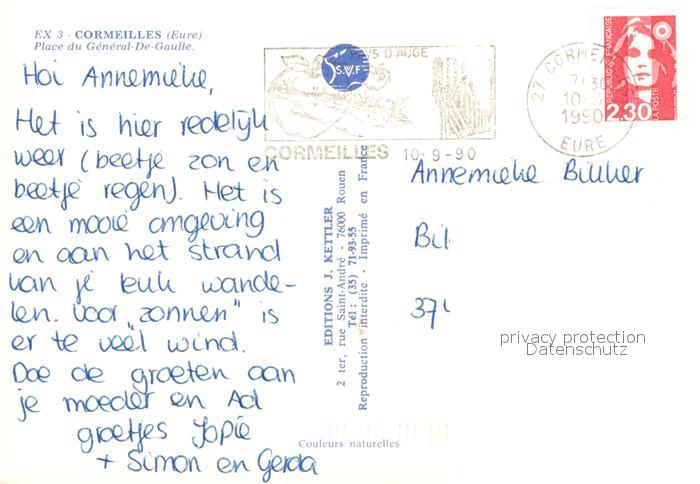 EX 3 - CORMEILLES (Eure)
Place du Général-De-Gaulle.
Hoi Annemieke,
Het is hier redelijk
weer (beetje zon en
beetje regen). Het is
een mooie omgeving
en aan het strand
kan je leuk wande-
len. Voor "zonnen" is
er te veel wind.
Doe de groeten aan
je moeder en Ad
groetjes Jopie
+ Simon en Gerda
PAYS D'AUGE
S.V.F
CORMEILLES 10-9-90
27 CORME
10-
1990
EURE
REPUBLIQUE FRANÇAISE
2,30
LA POSTE
EDITIONS J. KETTLER
2 ter, rue Saint-André - 76000 Rouen
Tél : (35) 71-93-55
Reproduction interdite - Imprimé en France
Annemieke
Bil
37
privacy protection
Datenschutz
Couleurs naturelles